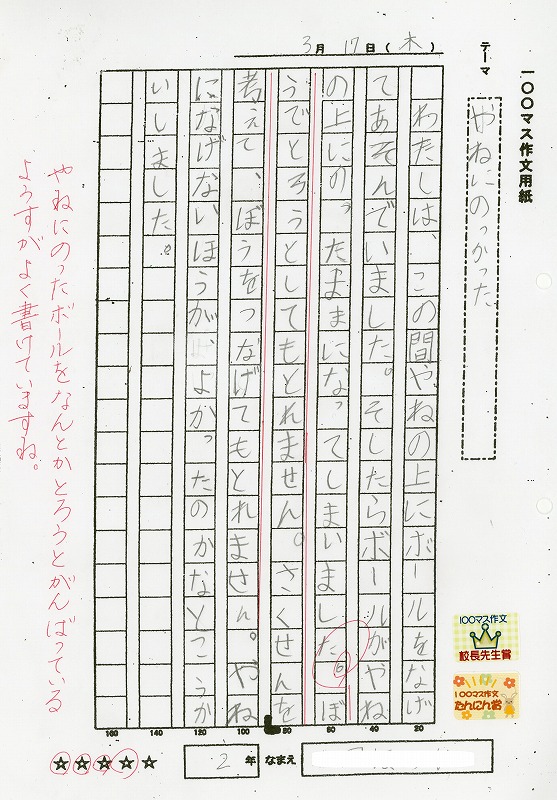 一〇〇マス作文用紙
テーマ
やねにのっかった
3月17日(木)
わたしは、この間やねの上にボールをなげ
てあそんでいました。そしたらボールがやね
の上にのったままになってしまいました。ぼ
うでとろうとしてもとれません。さくせんを
考えて、ぼうをつなげてもとれません。やね
になげないほうが、よかったのかなとこうか
いしました。
20
40
60
80
100
120
140
160
やねにのったボールをなんとかとろうとがんばっている
ようすがよく書けていますね。
100マス作文
校長先生賞
100マス作文
たんにん賞
☆☆☆☆☆
2年 なまえ